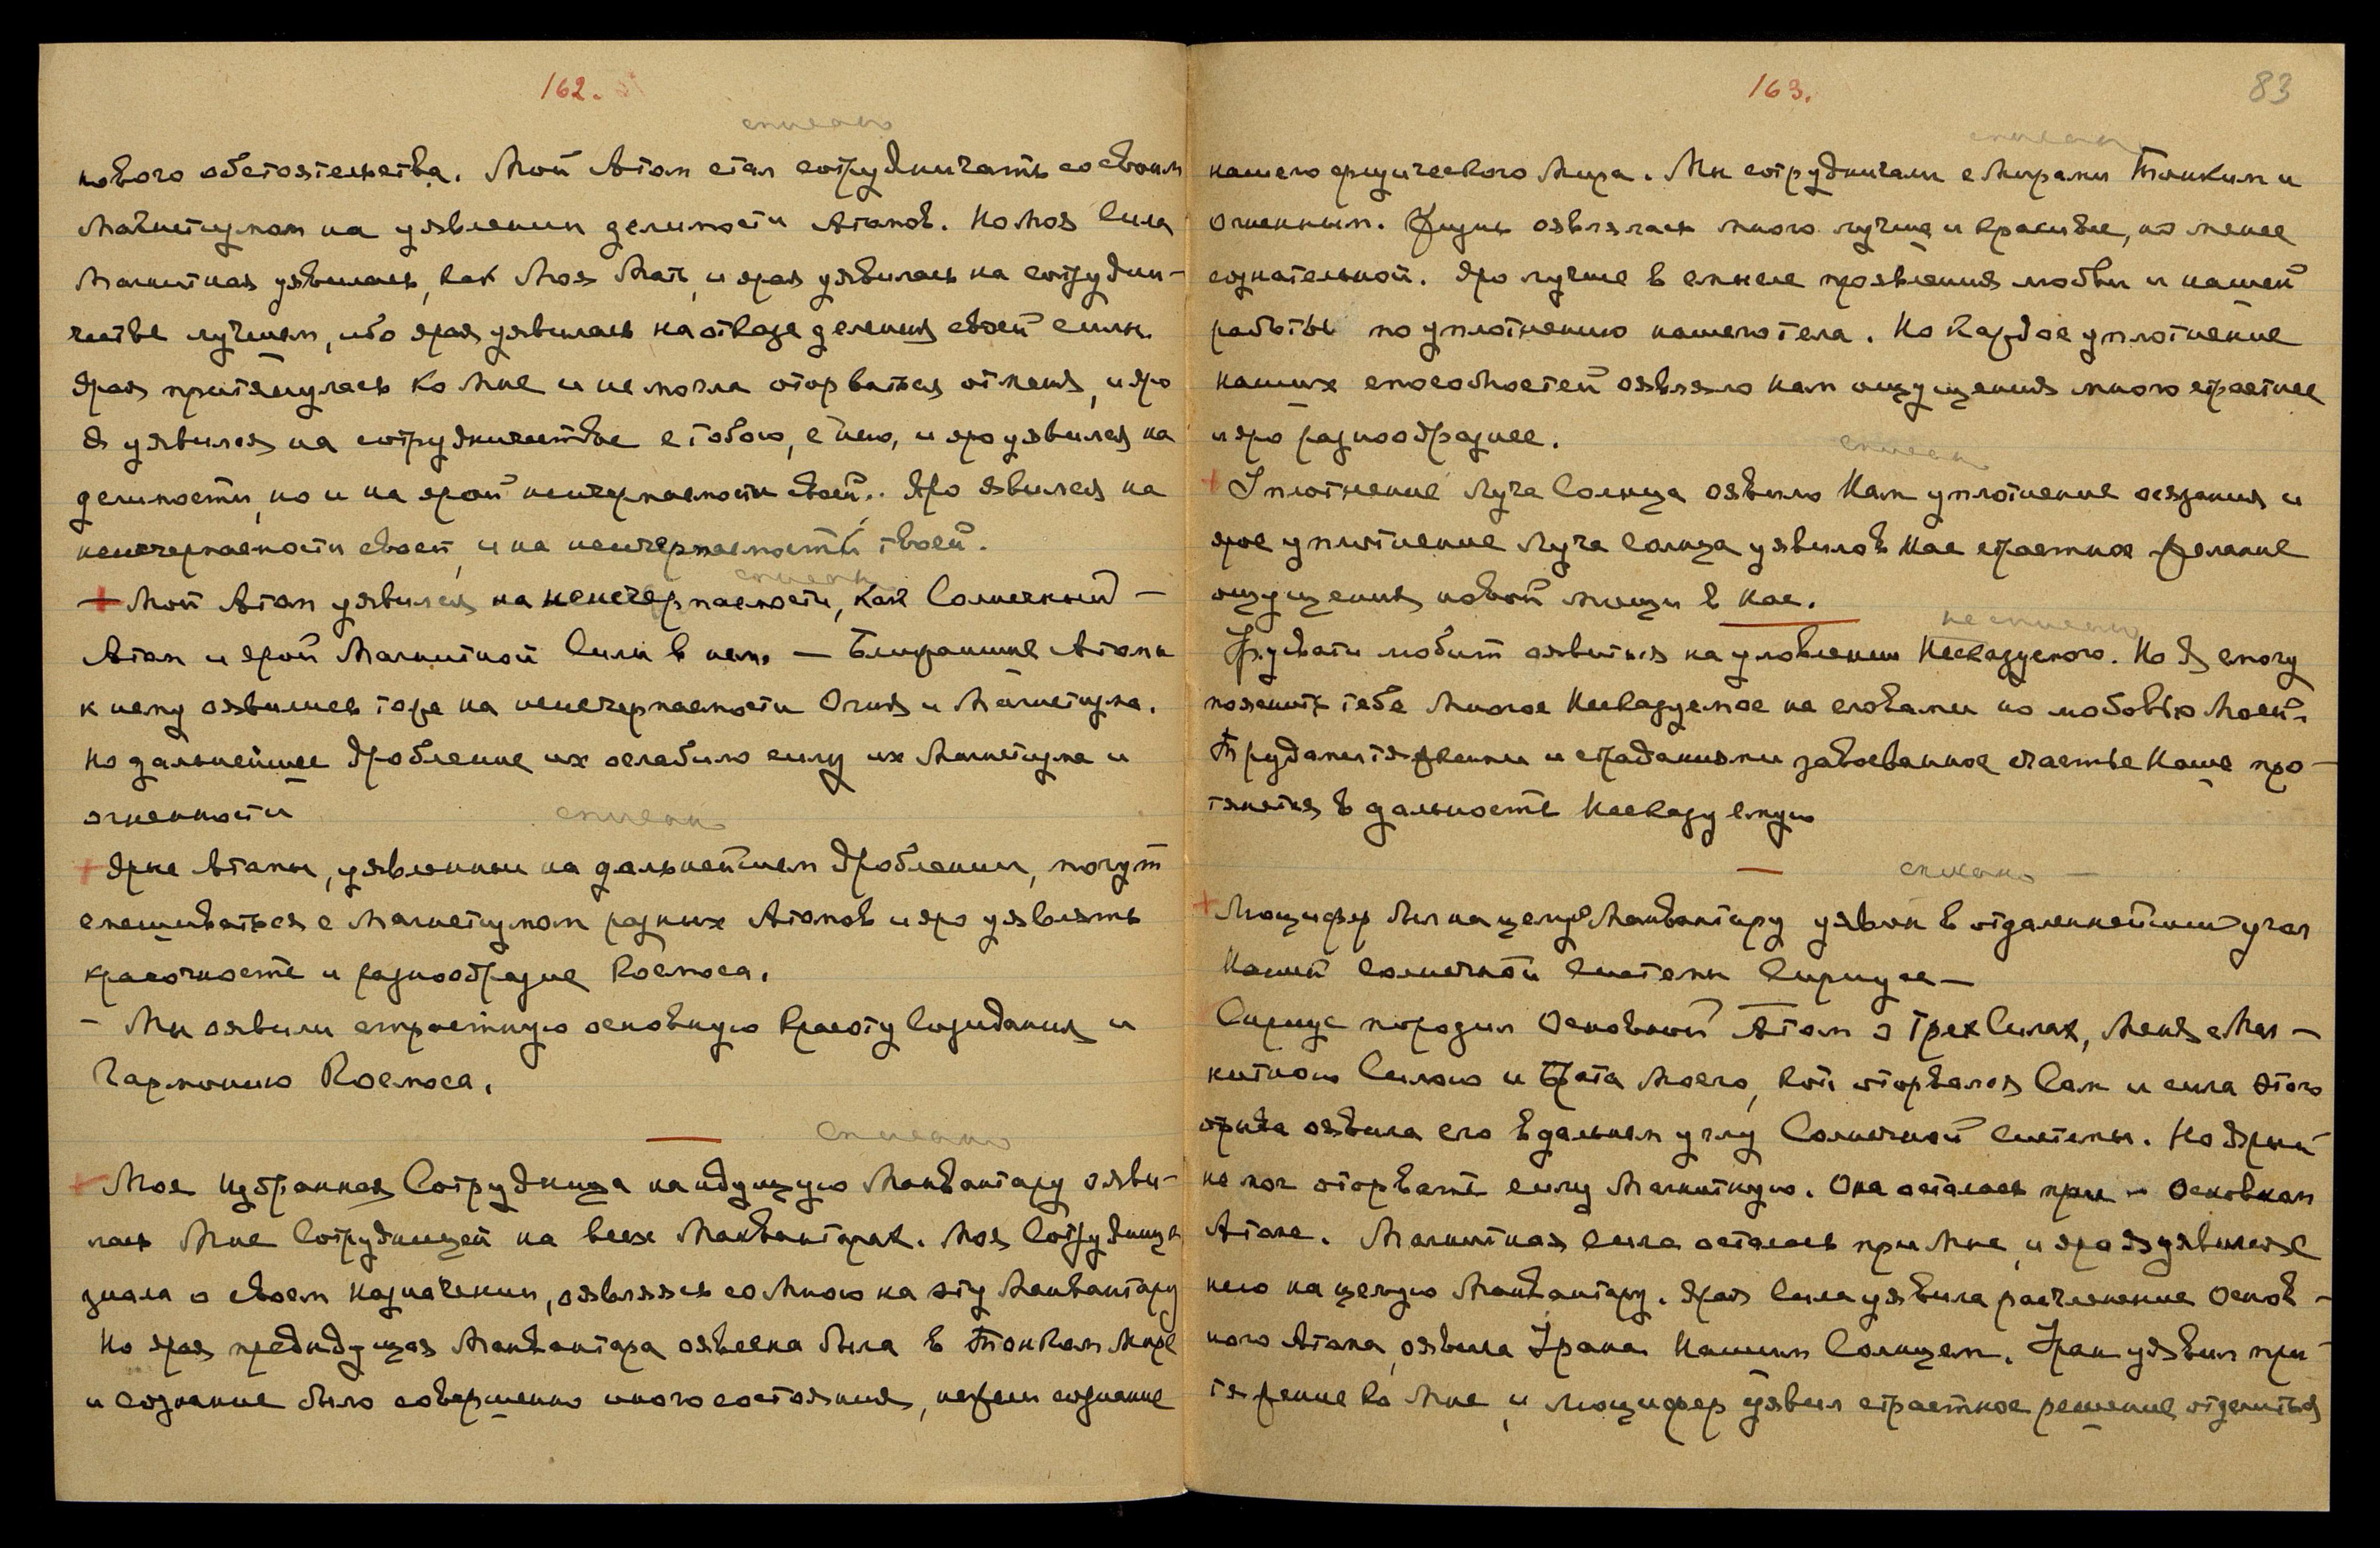 162.
списано
нового обстоятельства. Мой Атом стал сотрудничать со своим
Магнетизмом на уявлении делимости Атомов. Но моя Сила
Магнитная уявилась, как Моя Мать, и ярая уявилась на сотрудни-
честве лучшем, ибо ярая уявилась на отказе деления своей силы.
Ярая притянулась ко Мне и не могла оторваться от меня, и яро
Я уявился на сотрудничестве с тобою, с нею, и яро уявился на
делимости, но и на ярой неисчерпаемости своей. Яро явился на
неисчерпаемости своей, и на неисчерпаемости твоей.
списано
+ Мой Атом уявился на неисчерпаемости, как Солнечный –
Атом и ярой Магнитной Силы в нем. – Ближайшие Атомы
к нему оявились тоже на неисчерпаемости Огня и Магнетизма.
Но дальнейшее дробление их ослабило силу их Магнетизма и
огненности
списано
+ Ярые Атомы, уявленные на дальнейшем дроблении, могут
смешиваться с Магнетизмом разных Атомов и яро уявлять
красочность и разнообразие Космоса.
– Мы оявили страстную основную Красоту Созидания и
Гармонию Космоса.
списано
+ Моя Избранная Сотрудница на идущую Манвантару ояви-
лась Мне Сотрудницей на всех Манвантарах. Моя Сотрудница
знала о своем назначении, оявляяся со Мною на эту Манвантару
Но ярая предидущая Манвантара оявлена была в Тонком Мире
и сознание было совершенно иного состояния, нежели сознание
163.
83
списано
нашего физического Мира. Мы сотрудничали с Мирами Тонким и
Огненным. Жизнь оявлялась много лучше и красивее, но менее
сознательной. Яро лучше в смысле проявления любви и нашей
работы по уплотнению нашего тела. Но каждое уплотнение
наших способностей оявляло нам ощущения много страстнее
и яро разнообразнее.
списано
+ Уплотнение Луча Солнца оявило Нам уплотнение осязания и
ярое уплотнение Луча Солнца уявило в Нас страстное желание
ощущения новой мощи в Нас.
не списано
Урусвати любит оявиться на уловлении Несказуемого. Но Я смогу
пояснить тебе Многое Несказуемое не словами но любовью Моей.
Трудами тяжкими и страданиями завоеванное счастье Наше про-
тянется в дальность Несказуемую
списано –
+ Люцифер был на целую Манвантару уявлен в отдаленнейший угол
Нашей Солнечной Системы Сириусе –
Сириус породил Основной Атом о Трех Силах, Меня с Маг-
нитною Силою и Брата Моего, кот. оторвался Сам и сила этого
отрыва оявила его в дальнем углу Солнечной Системы. Но Ярый
не мог оторвать силу Магнитную. Она осталась при – Основном
Атоме. Магнитная сила осталась при Мне, и яро Я уявился с
нею на целую Манвантару. Ярая Сила уявила расчленение Основ-
ного Атома, оявила Урана Нашим Солнцем. Уран уявил при-
тяжение ко Мне, и Люцифер уявил страстное решение отделиться